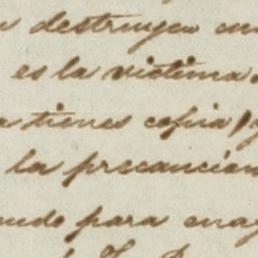 destruyen
es la victima.
tienes copia,
la precaucion
para